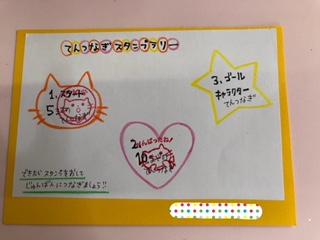 てんつなぎスタンプラリー
1.スタート
5
てんつなぎ
3.ゴール
キャラクター
てんつなぎ
2.がんばったね!
10
できたらスタンプをおして
じゅんばんにつなぎましょう!!